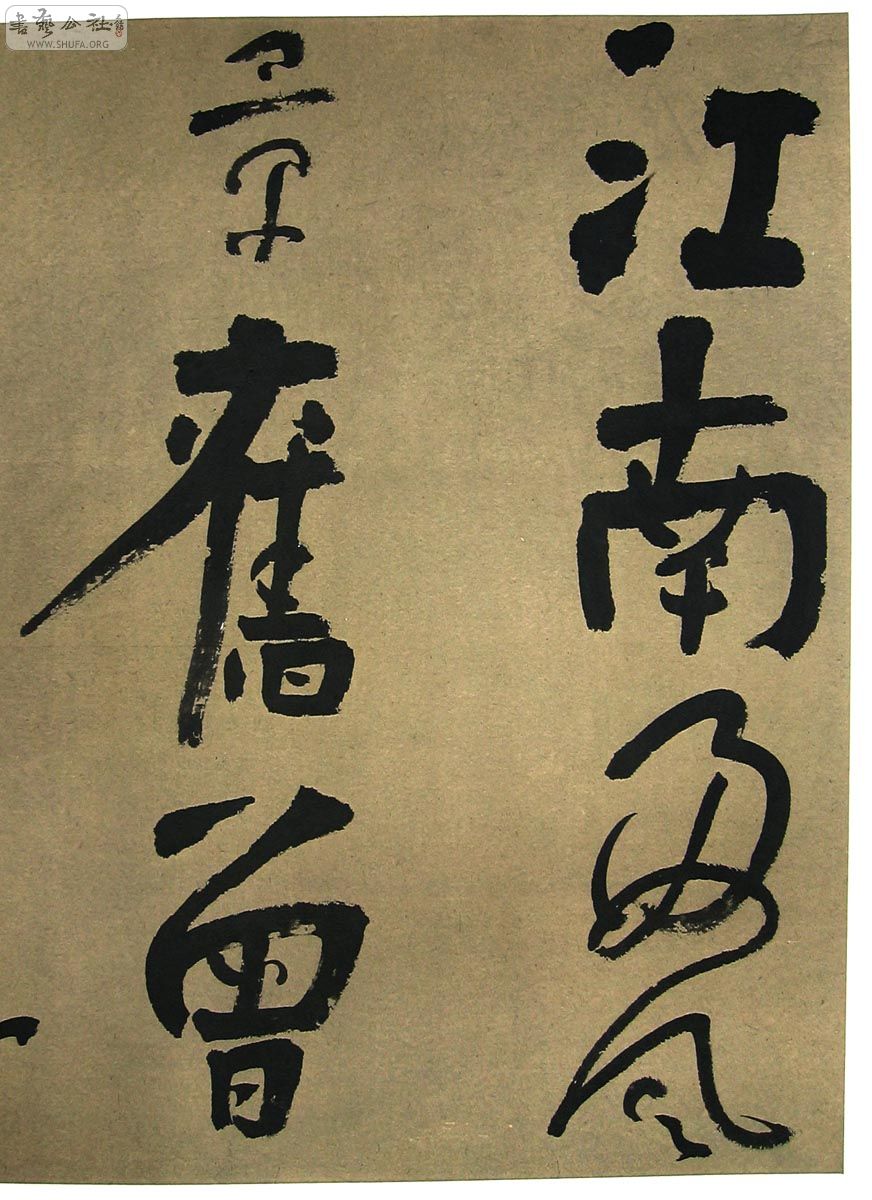 江南好風
景舊曾
書藝公社
WWW.SHUFA.ORG